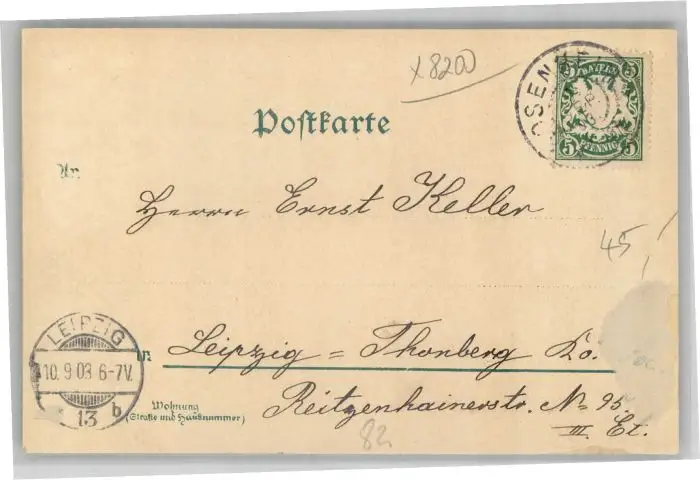 x 8200
OSENHEI
5 BAYERN 5
5 PFENNIG 5
Postkarte
An
Herrn Ernst Keller
45
LEIPZIG
10. 9 03 6-7V.
13 b
in Leipzig = Thonberg
Wohnung
(Straße und Hausnummer)
Reitzenhainerstr. No 95.
III Et.
82